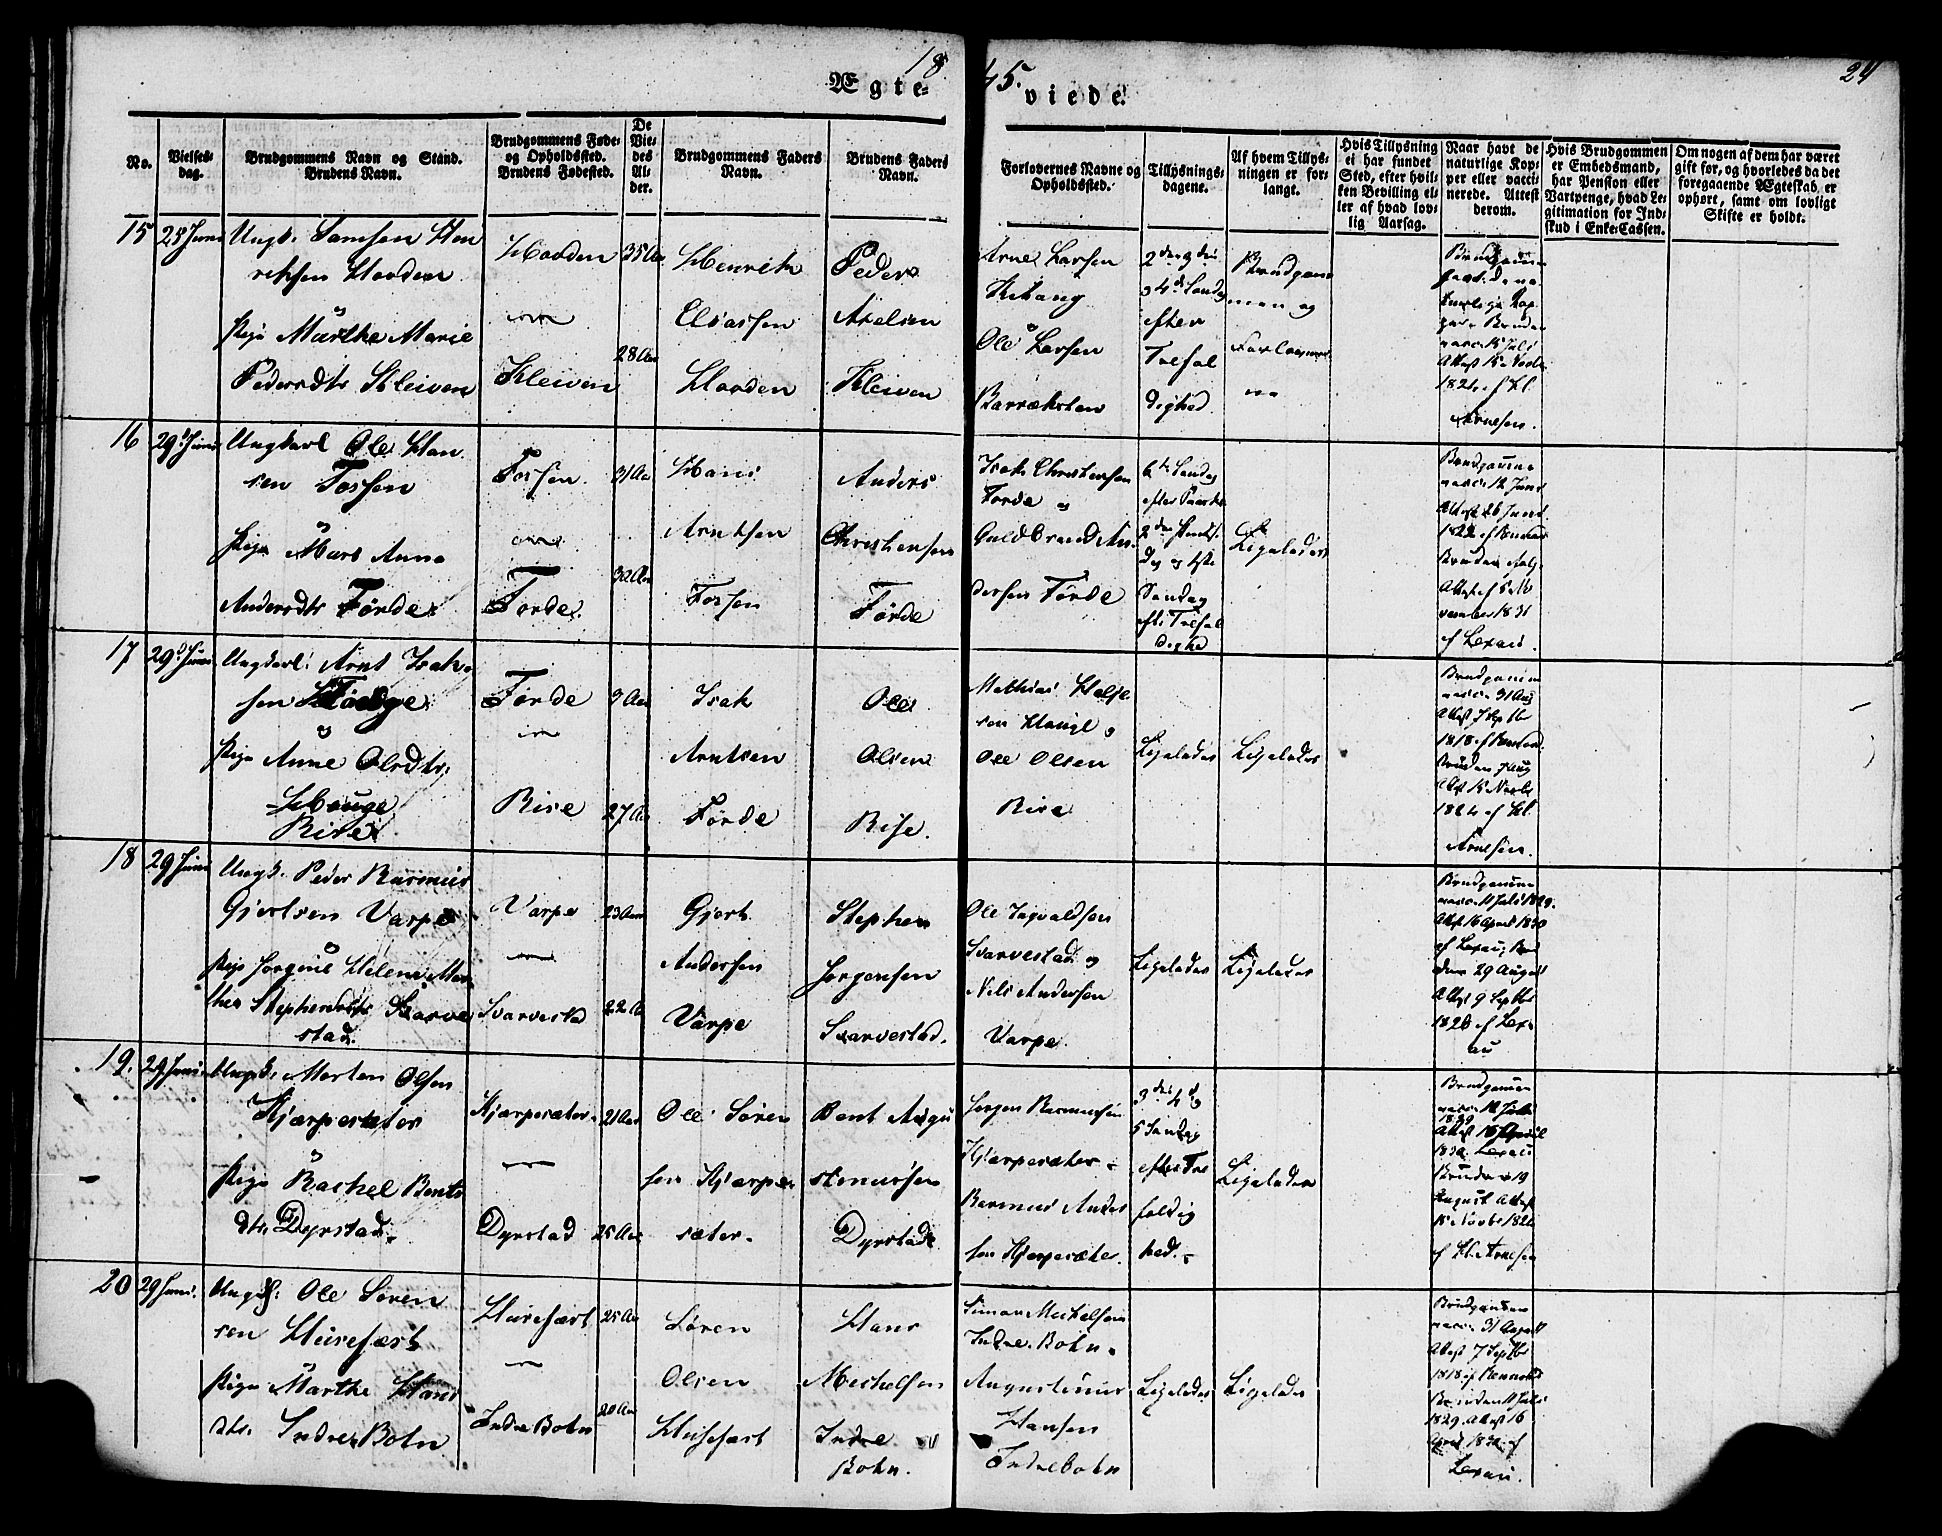 1845.
24
Ægteviede.
No.
Vielsesdag.
Brudgommens Navn og Stand.
Brudens Navn.
Brudgommens Føde-
og Opholdssted.
Brudens Fødested.
De
Vie-
des
Al-
der.
Brudgommens Faders
Navn.
Brudens Faders
Navn.
Forlovernes Navne og
Opholdssted.
Tillysnings-
dagene.
Af hvem Tillys-
ningen er for-
langt.
Hvis Tillysning
ei har fundet
Sted, efter hvil-
ken Bevilling el-
ler af hvad lov-
lig Aarsag.
Naar havt de
naturlige Kop-
per eller vacci-
nerede. Attest
derom.
Hvis Brudgommen
er Embedsmand,
har Pension eller
Vartpenge, hvad Le-
gitimation for Ind-
skud i Enke-Cassen.
Om nogen af dem har været
gift før, og hvorledes da det
foregaaende Ægteskab er
ophørt, samt om lovligt
Skifte er holdt.
15
28 Juni
Ungk. Samsen Hen
riksen Hovden
Pige Märthe Marie
Pedersdtr Kleiven
Hovden
Kleiven
35 Aar
28 Aar
Henrik
Eliassen
Hovden
Peder
Axelsen
Kleiven
Arne Larsen
Ole Larsen
Barreksten
2den 3die
og 4de Søndag
efter
Trefol
dighed
Brudgom
men og
Forloverne
Brudgommen
16
29 Juni
Ungkarl Ole Han
sen Fossen
Pige Mari Anna
Andersdtr Förde
Fossen
Förde
31 Aar
32 Aar
Hans
Arntsen
Fossen
Anders
Christensen
Förde
Isak Christensen
Förde og
Guldbrand An-
dersen Förde
6te Søndag
efter Paaske
Søndag
eft. Trefol
dighed
Ligeledes
Brudgommen
vacc. 12 Juni
Attest 26 Juni
af Lexau.
17
29 Juni
Ungkarl Arnt Isak-
sen
og
Pige Anne Olsdtr.
Hauge
Rise
Förde
Rise
27 Aar
Isak
Arntsen
Förde
Ole
Olsen
Rise.
Mathias
Ole Olsen
Rise
Ligeledes
Ligeledes
Brudgommen
vacc. 31 Aug
Arnesen.
18
29 Juni
Ungk. Peder Rasmus
Gjertsen Varpe
Pige Jorgine Helene Mar
the Stephensdtr Svarve
stad.
Varpe
Svarvestad
23 Aar
22 Aar
Gjert
Andersen
Varpe
Stephen
Jorgensen
Svarvestad.
Ole Ingvaldsen
Svarvestad og
Nils Andersen
Varpe.
Ligeledes
Ligeledes
Brudgommen
vacc. 11 Juli 1829.
Attest 16 April 1830
af Lexau, Bru
den 29 August
Attest 9 Septbr
1828 af Lex-
au
19.
29 Juni
Ungk. Morten Olsen
Kjærpesæter
Pige Rachel Bents
dtr. Dyrstad.
Kjærpesæter.
Dyrstad
21 Aar
25 Aar
Ole Søren
sen Kjærpe-
sæter.
Bent Augu
stinussen
Dyrstad
Jorgen Rasmussen
Kjærpesæter
Rasmus Ander
sen Kjærpesæter.
3die 4de og
5 Søndag
efter Tre
foldig
hed.
Ligeledes
Brudgommen
vacc. 11 Juli
1829
Attest 16 April
1830 Lexau
Bruden 19
August Attest
af Kl. Arnesen
20
29 Juni.
Ungk: Ole Søren
sen Husefæst
Pige Märthe Hans
dtr. Indre Botn
Husefæst
Indre Botn
25 Aar
20 Aar
Søren
Olsen
Husefæst
Hans
Michelsen
Indre
Botn.
Simon Michelsen
Indre Botn.
Augustinus
Hansen
Indrebotn
Ligeledes
Ligeledes
Brudgommen
vacc. 31 August
Attest 7 Septbr
1818 af Rennord
Bruden 11 Juli
1829. Attest 16
April 1830 af
Lexau.